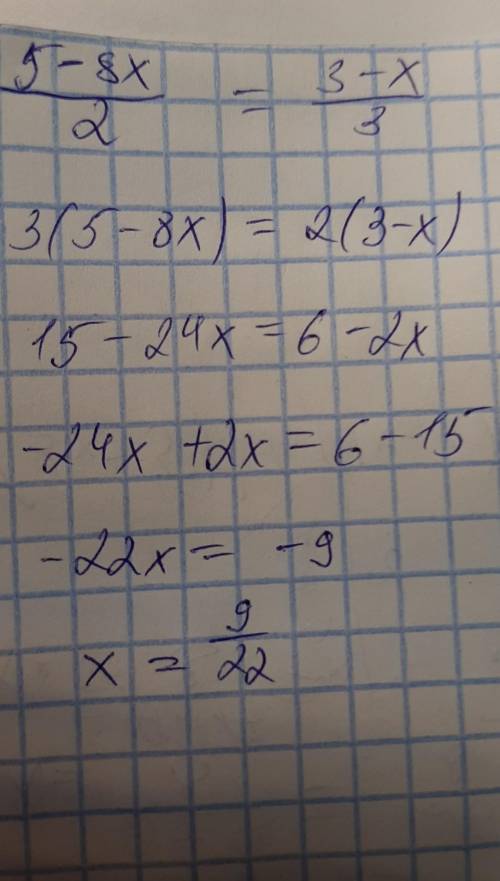 (5 - 8x)/2 = (3 - x)/3
3(5 - 8x) = 2(3 - x)
15 - 24x = 6 - 2x
-24x + 2x = 6 - 15
-22x = -9
x = 9/22